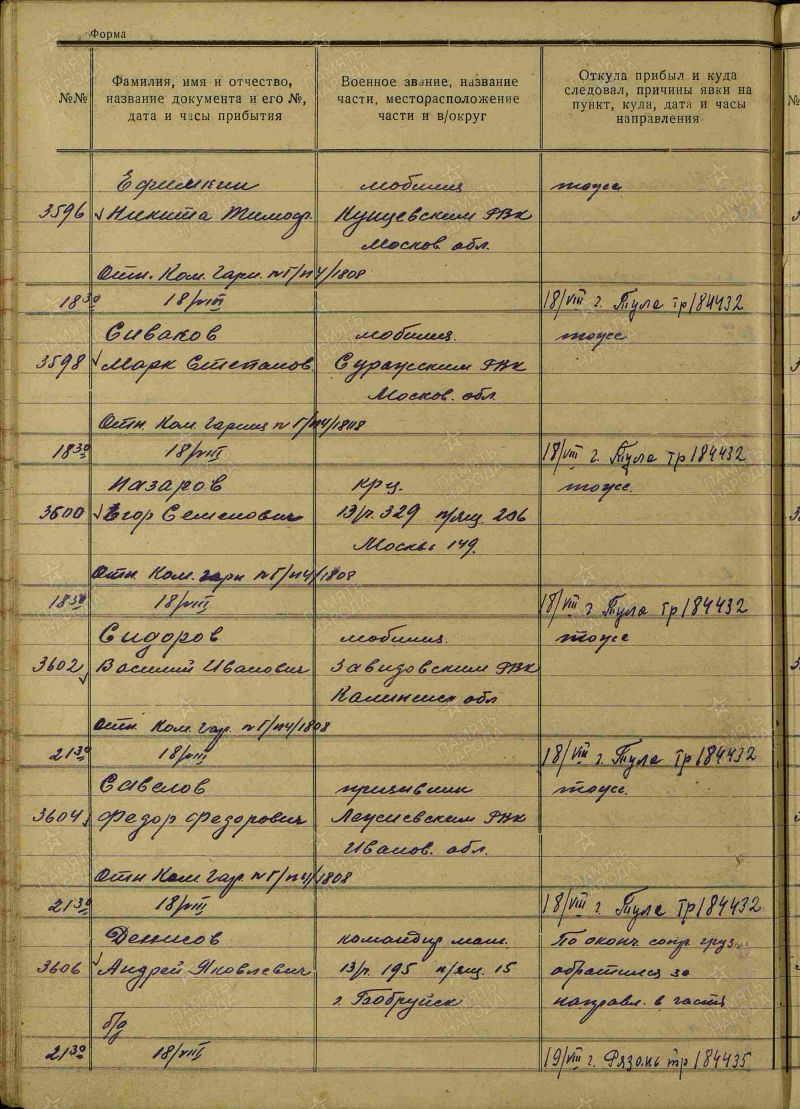 Форма
№№
Фамилия, имя и отчество,
название документа и его №,
дата и часы прибытия
Военное звание, название
части, месторасположение
части и в/округ
Откуда прибыл и куда
следовал, причины явки на
пункт, куда, дата и часы
направления
Ефимкин мобилиз тоже
3596 Никита Тимоф. Кунцевским РВК
Москов обл.
Отн. Ком. Гарн. №Г/п4/1808
18 30 18/VIII 18/VIII г. Тула тр 184432
Сиваков мобилиз. тоже
3598 Марк Степанов. Суражским РВК
Москов. обл
Отн. Ком. Гарниз №Г/п4/1808
18 30 18/VIII 18/VIII г. Тула тр 184432
Назаров крц. тоже.
3600 Егор Семенович 13/р. 329 п/ящ. 206
Москва 149.
Отн. Ком. гарн №Г/п4/1808
18 30 18/VIII 18/VIII г Тула тр 184432
Сидоров мобилиз. тоже
3602 Василий Иванович Завидовским РВК
Калининск обл
Отн. Ком. Гар. №Г/п4/1808
21 30 18/VIII 18/VIII г. Тула тр 184432
Савелов призывник тоже.
3604 Федор Федорович РВК
Иванов. обл.
Отн Ком Гар. №Г/п4/1808
21 30 18/VIII 18/VIII г. Тула тр 184432
Денисов командир По оконч. сопр. груз
3606 Андрей Яковлевич 13/р. 195 п/ящ. 15 обратился за
г. Бобруйск направл. в часть
б/д
21 30 18/VIII 19/VIII г. Рязань тр 184435.